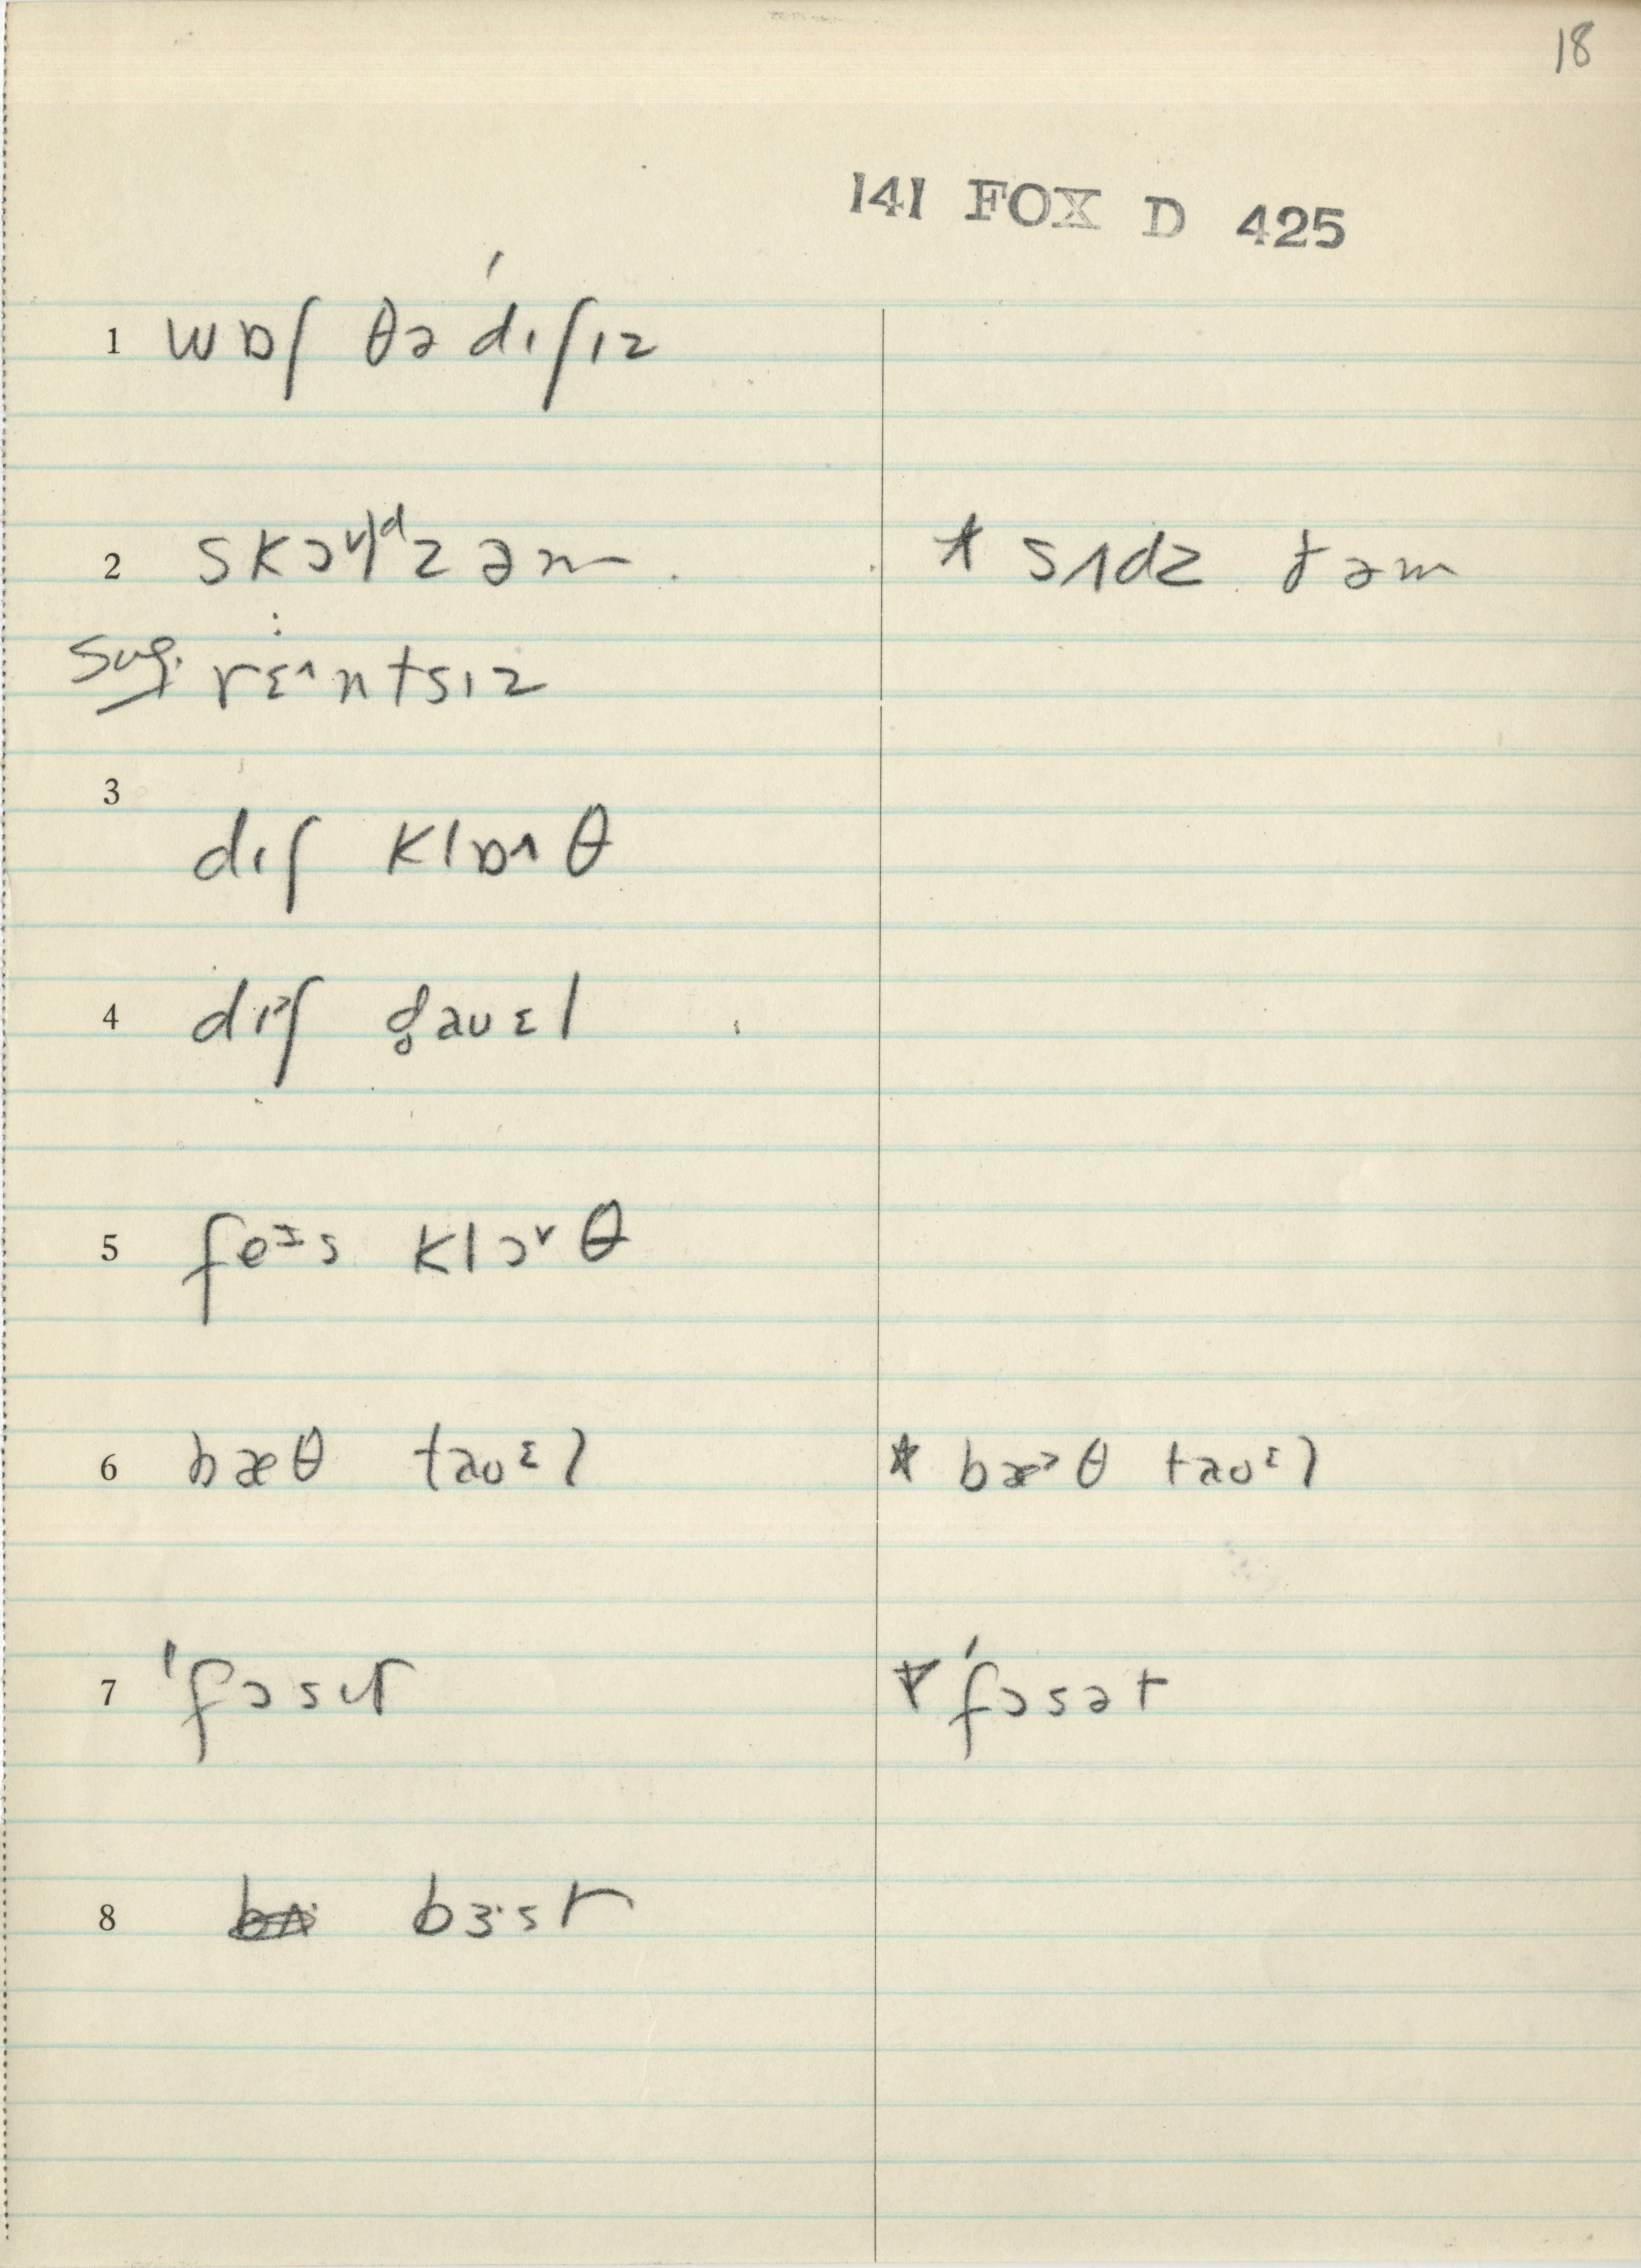 18
141 FOX D 425
1 wɒʃ θə ˈdɪʃɪz
2 skɔᵛldz əm. * sʌdz ðəm
Sug. rɛ·ʌntsɪz
3
dɪʃ klɒʌθ
4 dɪᵊʃ taʊɛl
5 feᶦs klɔᵛθ
6 bæθ taʊᵋl * bæᵊθ taʊᵋl
7 ˈfɔsɪt * ˈfɔsət
8 bɜ·st